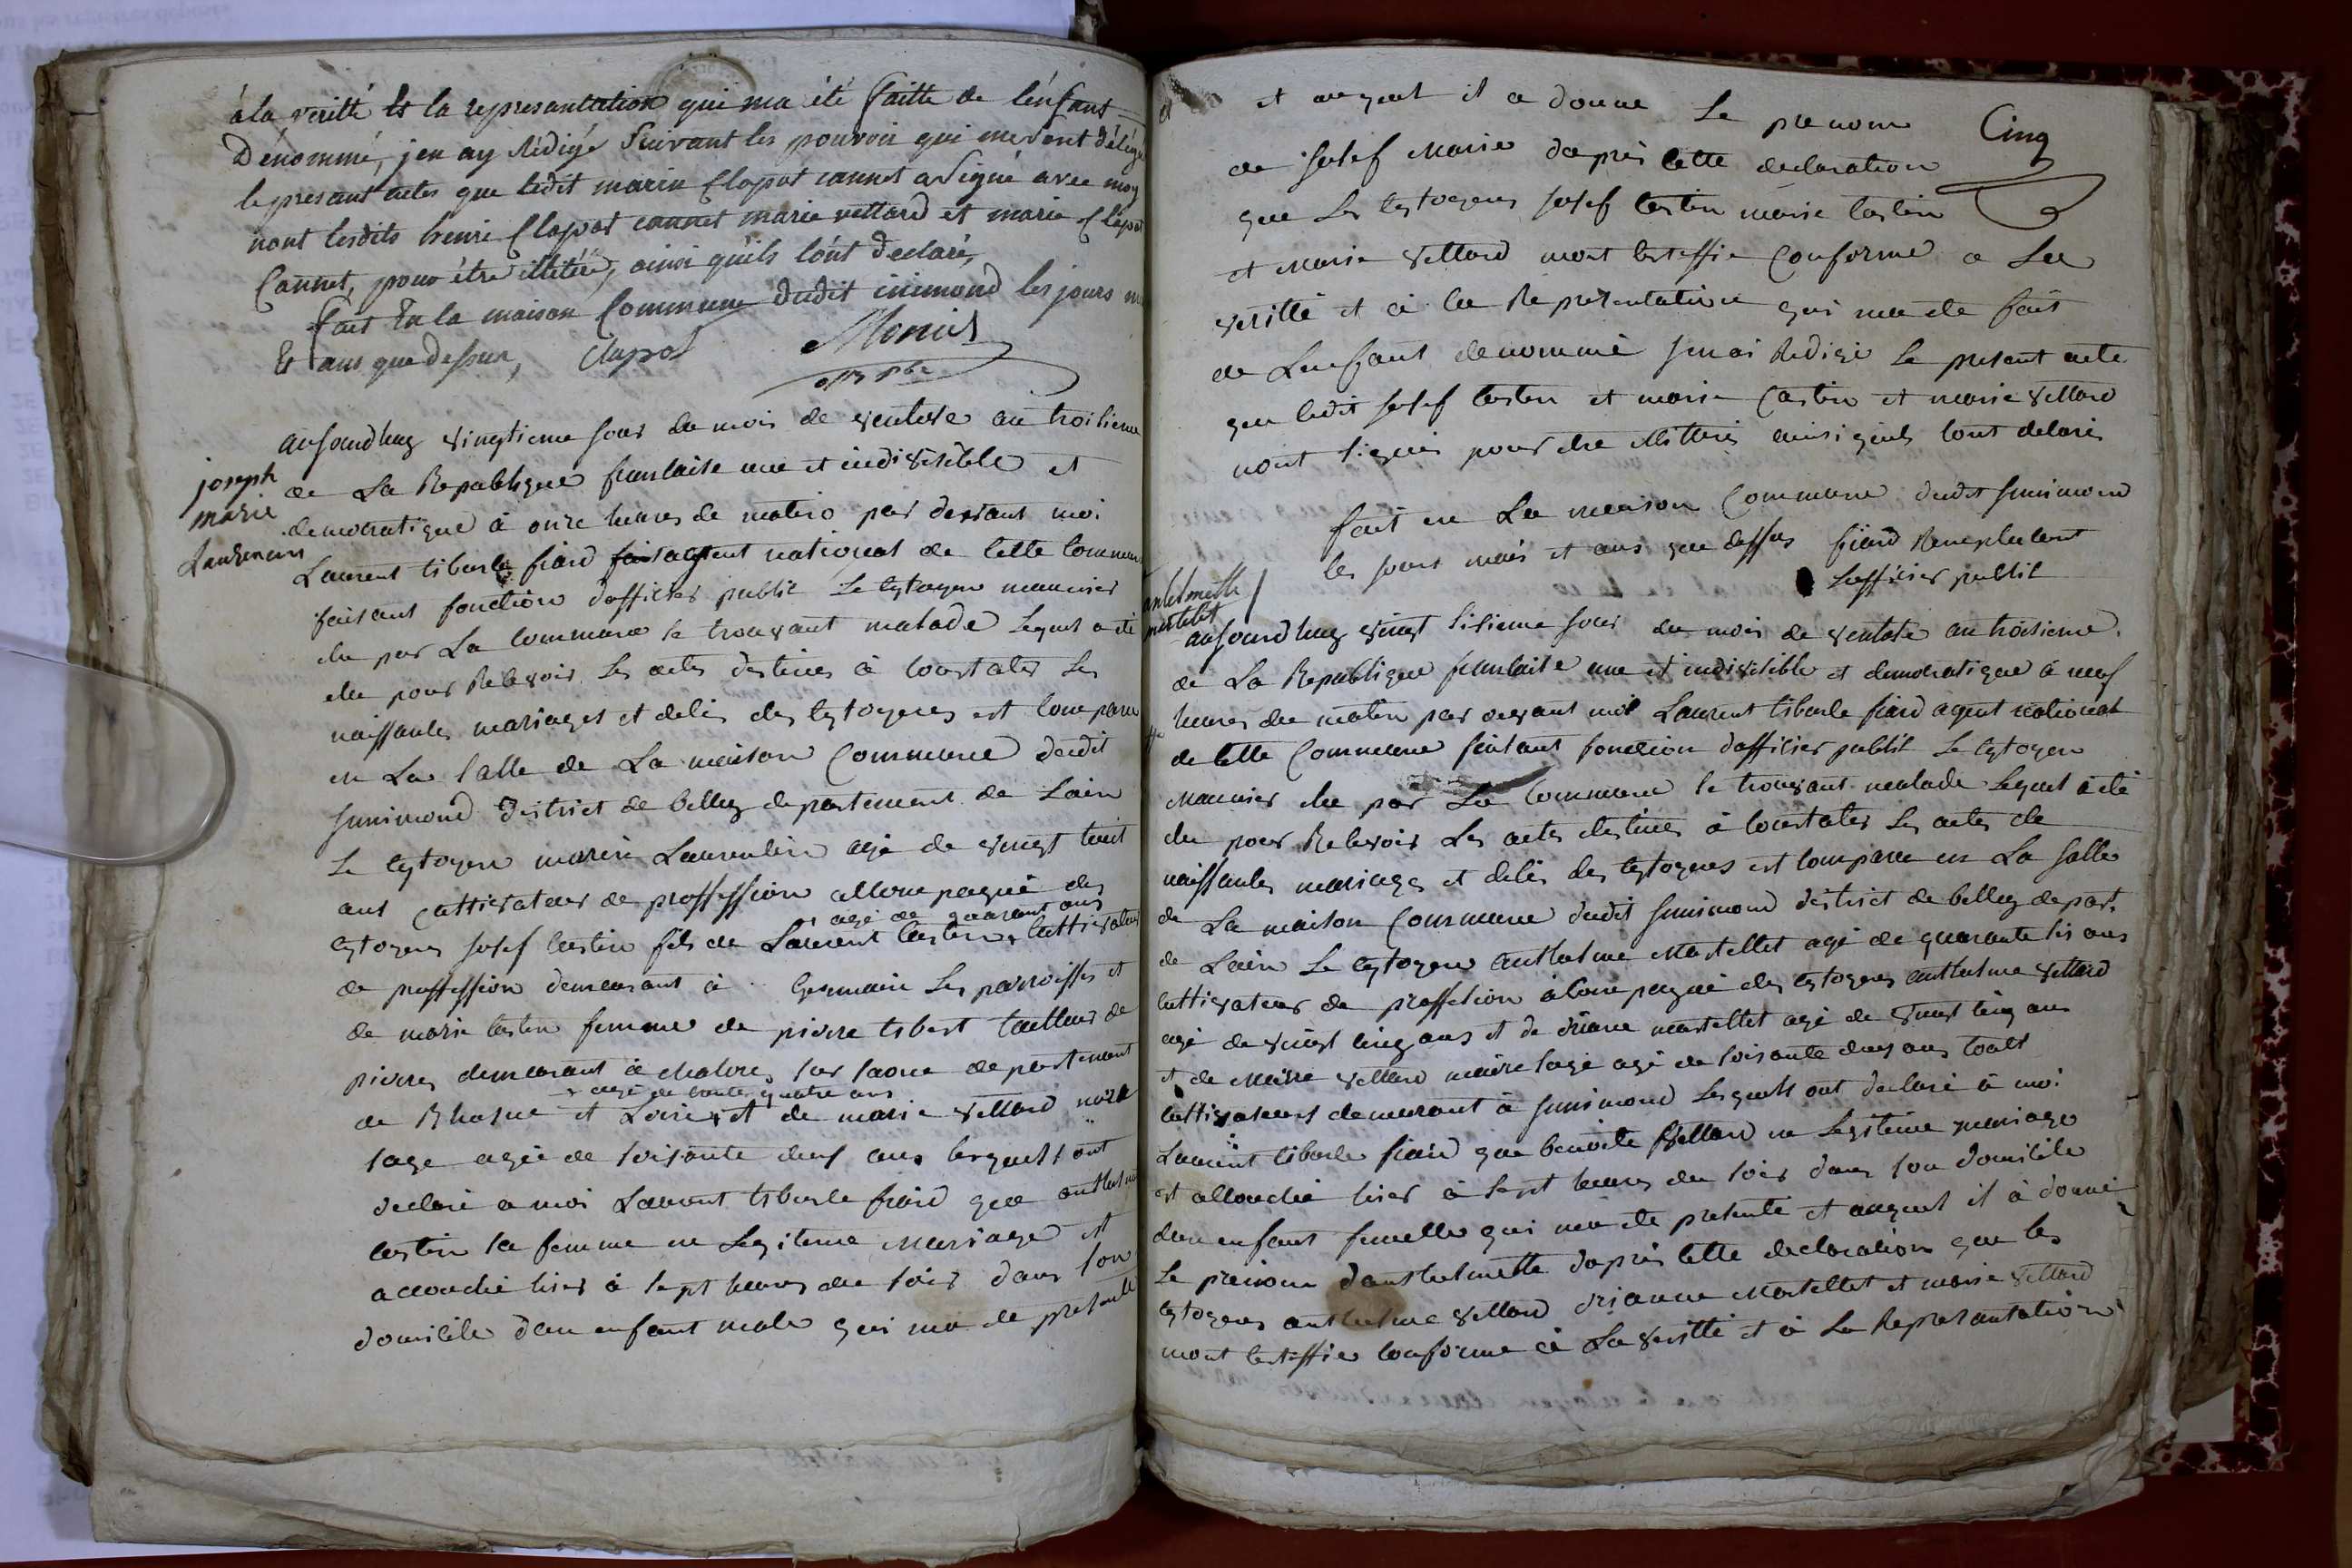 à la verité Et la represantation qui ma été faitte de lénfant
Dénommé, jen ay Rédigé Suivant les pouvoir qui me sont délégu
le presant actes que ledit marin Clapot cannet a Signé avec moy
nont lesdits henri Clapot cannet marie vettard et marie Clapot
Cannet, pour être illitéré, ainsi quils lont declaré,
fait En la maison Commune dudit inimond les jours m
Et ans que dessus, Clapot Monier
off. pbc
joseph
marie
Laurencin
aujourdhuy vingtieme jour du mois de ventose an troisieme
de La Republique franlaise une et indivisible et
democratique à onze heures de matin par devant moi
Laurent tiburle fiard agent national de cette commune
faisant fonction dofficier public Le cytoyen meunier
elu par La commune se trouvant malade Lequel a été
elu pour Relevoir Les actes destines à constater Les
naissances mariages et delés des cytoyens est comparu
en La salle de La maison Commune dudit
Innimond district de belley departement de Lain
Le cytoyen marin Laurencin agé de vingt huit
ans Cultivateur de proffession accompagné des
agé de quarant ans
cytoyens josef castin fils de Laurent castin cultivateur
de proffession demeurant à Germain Les parroisses et
de marie castin femme de pierre tibert tailleur de
pierres demeurant à Chalons sur saone departement
agé de trente quatre ans
de Rhosne et Loire et de marie vettard mere
sage agée de soisante deux ans lesquels ont
declaré a moi Laurent tiburle fiard que anthelme
castin sa femme en Legiteme Mariage est
accouché hier à sept heures du soir dans son
domicile dun enfant male qui ma ete presenté
et auquel il a donne Le prenom Cinq
de josef Marie dapres cette declaration
que Les cytoyens josef castin marie castin
et Marie vettard mont certeffie Conforme a La
verité et à la Representation qui ma ete fait
de Lenfant denommé jenai Redigé Le present acte
que ledit josef castin et marie Castin et marie vettard
nont signés pour etre illitterés ainsi quils lont delaré
fait en La maison Commune dudit Innimond
les jours mois et ans que dessus fiard Remplacent
Lofficier public
antelmette
martelet
aujourdhuy vingt sisieme jour du mois de ventose an troisieme
de La Republique franlaise une et indivisible et democratique à neuf
heures du matin par devant moi Laurent tiburle fiard agent national
de cette Commune faisant fonction dofficier public Le cytoyen
Meunier elu par La commune se trouvant malade Lequel a été
elu pour Relevoir Les actes destines à constater Les actes de
naissances mariages et delés des cytoyens est comparu en La salle
de La maison Commune dudit Innimond district de belley depart.
de Lain Le cytoyen Anthelme Martellet agé de quarante sis ans
cultivateur de proffesion acompagné des cytoyens anthelme vettard
agé de vingt cinq ans et de oriane martellet agé de vingt cinq ans
et de Marie vettard maire sage agé de soisante deux ans touts
cultivateurs demeurant à Innimond Lesquels ont declaré à moi
Laurent tiburle fiard que benoite vettard en Legiteme mariage
est accouché hier à sept heures du soir dans son domicile
dun enfant femelle qui ma ete presenté et auquel il à donné
Le prenom danthelmette dapres cette declaration que les
cytoyens anthelme vettard orianne Martellet et marie vettard
mont certeffie conforme à La verité et à La Represantation